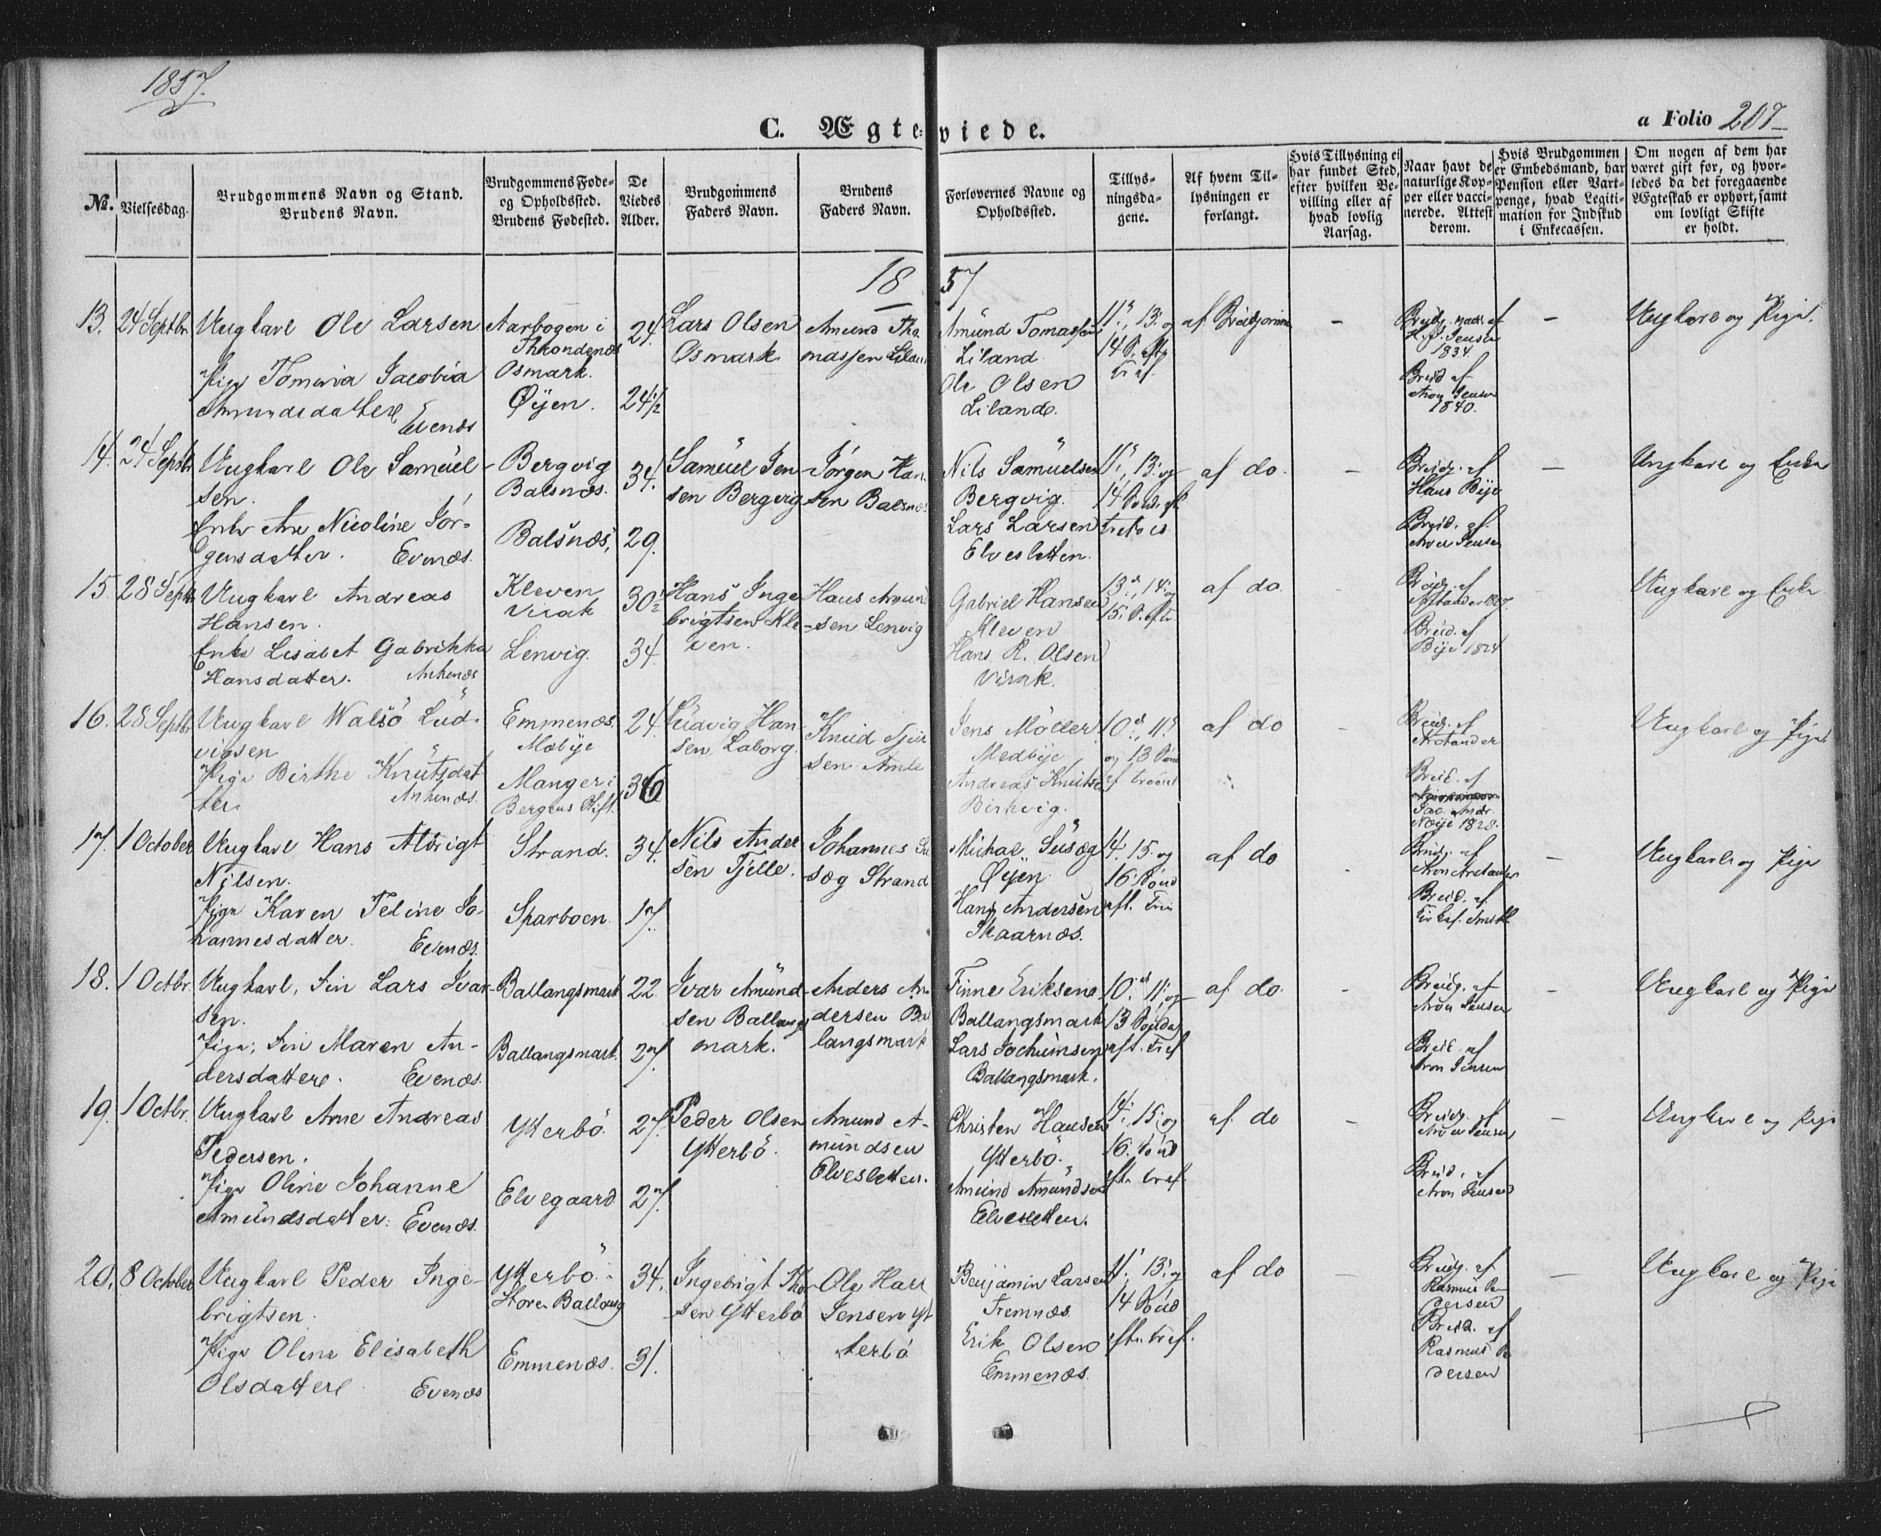 1857.
C. Ægteviede.
a Folio 207
No.
Vielsesdag.
Brudgommens Navn og Stand.
Brudens Navn.
Brudgommens Føde-
og Opholdssted.
Brudens Fødested.
De
Viedes
Alder.
Brudgommens
Faders Navn.
Brudens
Faders Navn.
Forlovernes Navne og
Opholdssted.
Tillys-
ningsda-
gene.
Af hvem Til-
lysningen er
forlangt.
Hvis Tillysning ei
har fundet Sted,
efter hvilken Be-
villing eller af
hvad lovlig
Aarsag.
Naar havt de
naturlige Kop-
per eller vacci-
nerede. Attest
derom.
Hvis Brudgommen
er Embedsmand, har
Pension eller Vart-
penge, hvad Legiti-
mation for Indskud
i Enkecassen.
Om nogen af dem har
været gift før, og hvor-
ledes da det foregaaende
Ægteskab er ophørt, samt
om lovligt Skifte
er holdt.
1857
13.
24 Septbr
Ungkarl Ole Larsen
Pige Tomina Jacobia
Amundsdatter
Evenæs
Aarbogen i
Throndenæs
Osmark.
Øyen.
24.
24½
Lars Olsen
Osmark
Amund Tho
massen Liland
Amund Tomassen
Liland.
Ole Olsen
Liland.
11, 13 og
14 S. eft
tref
af Brudgommen
–
Brudg. vacc. af
Jensen
1834.
Brud af
Aron Jensen
1840.
–
Ungkarl og Pige.
14.
24 Septbr
Ungkarl Ole Samuel
sen.
Enke Ane Nicoline Jör-
gensdatter. Evenæs.
Bergvig
Balsnæs.
Balsnæs,
34.
29.
Samuel Jen
sen Bergvig
Jörgen Han
sen Balsnæs
Nils Samuelsen
Bergvig.
Lars Larsen
Elvesletten.
11, 13 og
14 Sønd. eft
tref
af do.
–
Brudg. af
Hans Bÿe
Brud. af
Aron Jensen
–
Ungkarl og Enke
15.
28 Septbr
Ungkarl Andreas
Hansen.
Enke Lisabet Gabrikka
Hansdatter. Ankenæs
Kleven
Virak
Lenvig.
30½
34.
Hans Inge
brigtsen Kle
ven.
Hans Amund
sen Lenvig
Gabriel Hansen
Kleven
Hans R. Olsen
Virak.
13, 14 og
15. S. eftr
af do.
Brudg. af
Arctander 1827
Brud. af
Bÿe 1824
Ungkarl og Enke
16.
28 Septbr
Ungkarl Walsö Lud-
vigsen
Pige Birthe Knutsdat
ter. Ankenæs.
Emmenæs.
Mæbÿe
Manger i
Bergens Stift.
24.
36
Ludvig Han-
sen Laborg.
Knud
sen
Jens Möller
Medbÿe
Andreas Knutsen
Birkvig.
10, 11
og 13 Sønd
ef. treenit
af do
–
Brudg. af
Arctander
Brud. af
Jac. Andr.
1828.
Ungkarl og Pige
17.
1 October
Ungkarl Hans Albrigt
Nilsen.
Pige Karen Peline Jo-
hannesdatter. Evenæs.
Strand.
Sparboen
34.
17.
Nils Ander
sen Tjelle.
Johannes Su
sæg Strand
Michae Susæg
Øyen
Hans Andersen
Skaarnæs.
14. 15. og
16. Sønd
eft. Trin
af do
Brudg. af
Aron Arctander
Brud. af
–
Ungkarl og Pige
18.
1 Octbr.
Ungkarl, Fin Lars Ivar
sen.
Pige, Fin Maren An-
dersdatter. Evenæs.
Ballangsmark
Ballangsmark.
22.
27.
Ivar Amund-
sen Ballangs
mark.
Anders An
dersen Bal
langsmark
Finne Eriksen
Ballangsmark
Lars Jochumsen
Ballangsmark.
10. 11. og
13 Søndag
eft. tref
af do.
–
Brudg. af
Aron Jensen
Brud. af
Aron Jensen
Ungkarl og Pige
19.
1 Octbr.
Ungkarl Arne Andreas
Pedersen.
Pige Oline Johanne
Amundsdatter. Evenæs.
Ytterbö.
Elvegaard
27.
27.
Peder Olsen
Ytterbö.
Amund A-
mundsen
Elvesletten.
Christen Hansen
Ytterbö.
Amund Amundsen
Elvesletten.
14. 15. og
16. Sønd
eftr. tref.
af do
–
Brudg. af
Aron Jensen
Brud. af
Aron Jensen
–
Ungkarl og Pige
20.
8 October
Ungkarl Peder Inge-
brigtsen.
Pige Oline Elisabeth
Olsdatter. Evenæs
Ytterbö.
Store Ballang
Emmenæs.
34.
31.
Ingebrigt Thor
sen Ytterbö
Ole Hart
Jensen Yt
terbö
Benjamin Larsen
Fremnæs.
Erik Olsen
Emmenæs.
11. 13. og
14 Sønd
eftr. tref.
af do
–
Brudg. af
Rasmus Pe
dersen
Brud. af
Rasmus Pe
dersen
–
Ungkarl og Pige